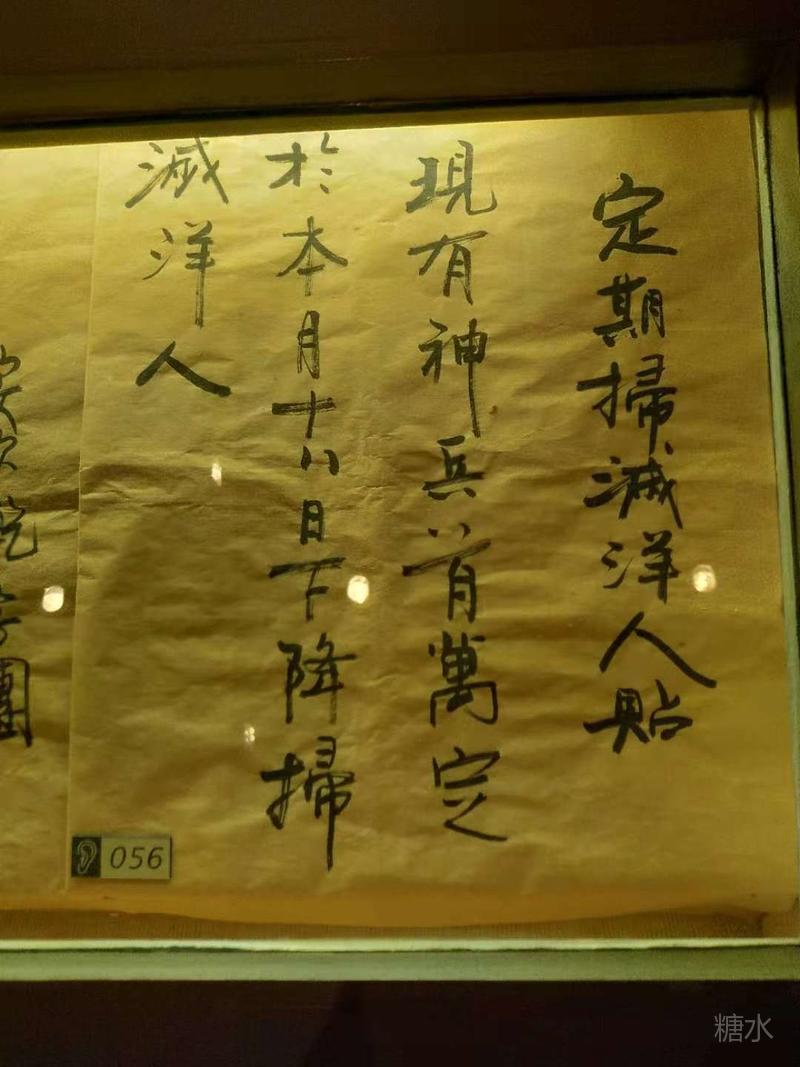 定期掃滅洋人貼
現有神兵八百萬定
於本月十八日下降掃
滅洋人
團
056
糖水